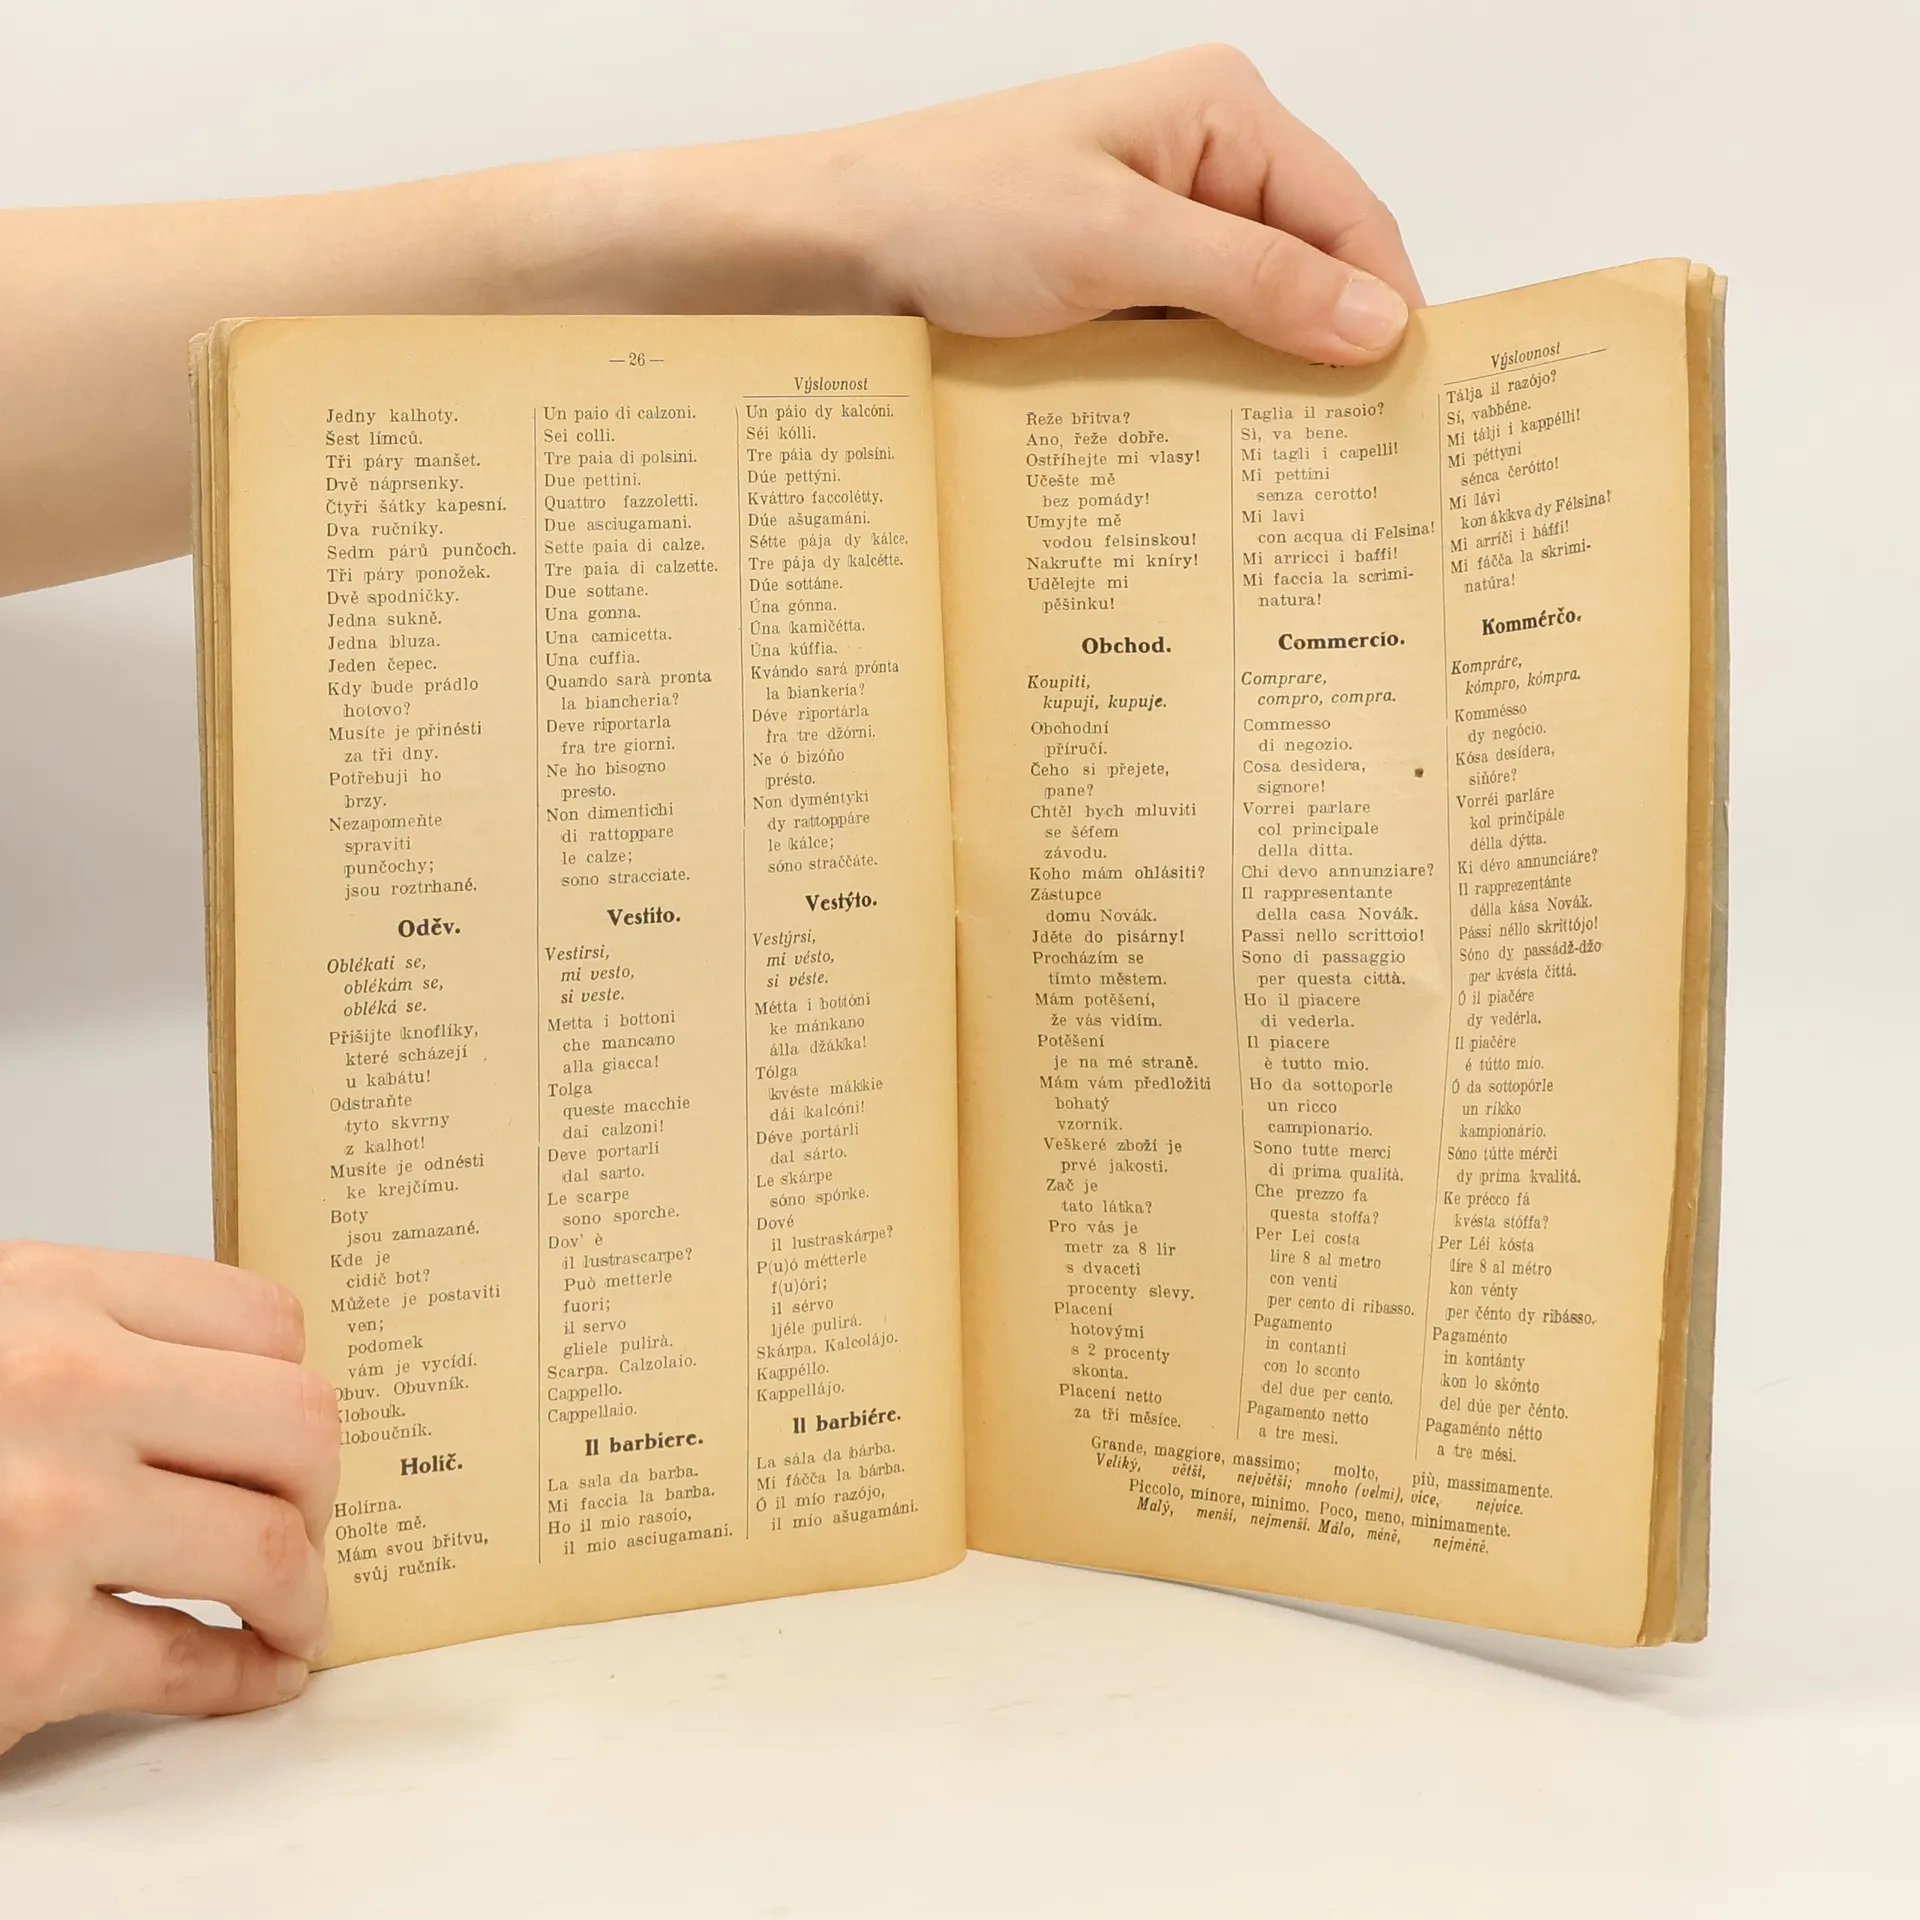 —26—
Jedny kalhoty.
Šest límců.
Tři páry manšet.
Dvě náprsenky.
Čtyři šátky kapesní.
Dva ručníky.
Sedm párů punčoch.
Tři páry ponožek.
Dvě spodničky.
Jedna sukně.
Jedna bluza.
Jeden čepec.
Kdy bude prádlo
hotovo?
Musíte je přinésti
za tři dny.
Potřebuji ho
brzy.
Nezapomeňte
spraviti
punčochy;
jsou roztrhané.
Oděv.
Oblékati se,
oblékám se,
obléká se.
Přišijte knoflíky,
které scházejí
u kabátu!
Odstraňte
tyto skvrny
z kalhot!
Musíte je odnésti
ke krejčímu.
Boty
jsou zamazané.
Kde je
cidič bot?
Můžete je postaviti
ven;
podomek
vám je vycídí.
Obuv. Obuvník.
Klobouk.
Kloboučník.
Holič.
Holírna.
Oholte mě.
Mám svou břitvu,
svůj ručník.
Un paio di calzoni.
Sei colli.
Tre paia di polsini.
Due pettini.
Quattro fazzoletti.
Due asciugamani.
Sette paia di calze.
Tre paia di calzette.
Due sottane.
Una gonna.
Una camicetta.
Una cuffia.
Quando sarà pronta
la biancheria?
Deve riportarla
fra tre giorni.
Ne ho bisogno
presto.
Non dimentichi
di rattoppare
le calze;
sono stracciate.
Vestito.
Vestirsi,
mi vesto,
si veste.
Metta i bottoni
che mancano
alla giacca!
Tolga
queste macchie
dai calzoni!
Deve portarli
dal sarto.
Le scarpe
sono sporche.
Dov' è
il lustrascarpe?
Può metterle
fuori;
il servo
gliele pulirà.
Scarpa. Calzolaio.
Cappello.
Cappellaio.
Il barbiere.
La sala da barba.
Mi faccia la barba.
Ho il mio rasoio,
il mio asciugamani.
Výslovnost
Un páio dy kalcóni.
Séi kólli.
Tre páia dy polsíni.
Dúe pettýni.
Kváttro faccolétty.
Dúe ašugamáni.
Sétte pája dy kálce.
Tre pája dy kalcétte.
Dúe sottáne.
Úna gónna.
Úna kamičétta.
Úna kúffia.
Kvándo sará prónta
la biankería?
Déve riportárla
fra tre džórni.
Ne ó bizóňo
présto.
Non dyméntyki
dy rattoppáre
le kálce;
sóno straččáte.
Vestýto.
Vestýrsi,
mi vésto,
si véste.
Métta i bottóni
ke mánkano
álla džákka!
Tólga
kvéste mákkie
dái kalcóni!
Déve portárli
dal sárto.
Le skárpe
sóno spórke.
Dové
il lustraskárpe?
P(u)ó métterle
f(u)óri;
il sérvo
ljéle pulirá.
Skárpa. Kalcolájo.
Kappéllo.
Kappellájo.
Il barbiére.
La sála da bárba.
Mi fáčča la bárba.
Ó il mío razójo,
il mío ašugamáni.
Řeže břitva?
Ano, řeže dobře.
Ostříhejte mi vlasy!
Učešte mě
bez pomády!
Umyjte mě
vodou felsinskou!
Nakruťte mi kníry!
Udělejte mi
pěšinku!
Obchod.
Koupiti,
kupuji, kupuje.
Obchodní
příručí.
Čeho si přejete,
pane?
Chtěl bych mluviti
se šéfem
závodu.
Koho mám ohlásiti?
Zástupce
domu Novák.
Jděte do pisárny!
Procházím se
tímto městem.
Mám potěšení,
že vás vidím.
Potěšení
je na mé straně.
Mám vám předložiti
bohatý
vzorník.
Veškeré zboží je
prvé jakosti.
Zač je
tato látka?
Pro vás je
metr za 8 lir
s dvaceti
procenty slevy.
Placení
hotovými
s 2 procenty
skonta.
Placení netto
za tři měsíce.
Taglia il rasoio?
Sì, va bene.
Mi tagli i capelli!
Mi pettini
senza cerotto!
Mi lavi
con acqua di Felsina!
Mi arricci i baffi!
Mi faccia la scrimi-
natura!
Commercio.
Comprare,
compro, compra.
Commesso
di negozio.
Cosa desidera,
signore!
Vorrei parlare
col principale
della ditta.
Chi devo annunziare?
Il rappresentante
della casa Novák.
Passi nello scrittoio!
Sono di passaggio
per questa città.
Ho il piacere
di vederla.
Il piacere
è tutto mio.
Ho da sottoporle
un ricco
campionario.
Sono tutte merci
di prima qualità.
Che prezzo fa
questa stoffa?
Per Lei costa
lire 8 al metro
con venti
per cento di ribasso.
Pagamento
in contanti
con lo sconto
del due per cento.
Pagamento netto
a tre mesi.
Výslovnost
Tálja il razójo?
Sí, vabbéne.
Mi tálji i kappélli!
Mi péttyni
sénca čerótto!
Mi lávi
kon ákkva dy Félsina!
Mi arríči i báffi!
Mi fáčča la skrimi-
natúra!
Kommérčo.
Kompráre,
kómpro, kómpra.
Kommésso
dy negócio.
Kósa desídera,
siňóre?
Vorréi parláre
kol prinčipále
délla dýtta.
Ki dévo annunciáre?
Il rapprezentánte
délla kása Novák.
Pássi néllo skrittójo!
Sóno dy passádž-džo
per kvésta čittá.
Ó il piačére
dy vedérla.
Il piačére
é tútto mío.
Ó da sottopórle
un ríkko
kampionário.
Sóno tútte mérči
dy príma kvalitá.
Ke précco fá
kvésta stóffa?
Per Léi kósta
líre 8 al métro
kon vénty
per čénto dy ribásso.
Pagaménto
in kontánty
kon lo skónto
del dúe per čénto.
Pagaménto nétto
a tre mési.
Grande, maggiore, massimo; molto, più, massimamente.
Veliký, větší, největší; mnoho (velmi), více, nejvíce.
Piccolo, minore, minimo. Poco, meno, minimamente.
Malý, menší, nejmenší. Málo, méně, nejméně.